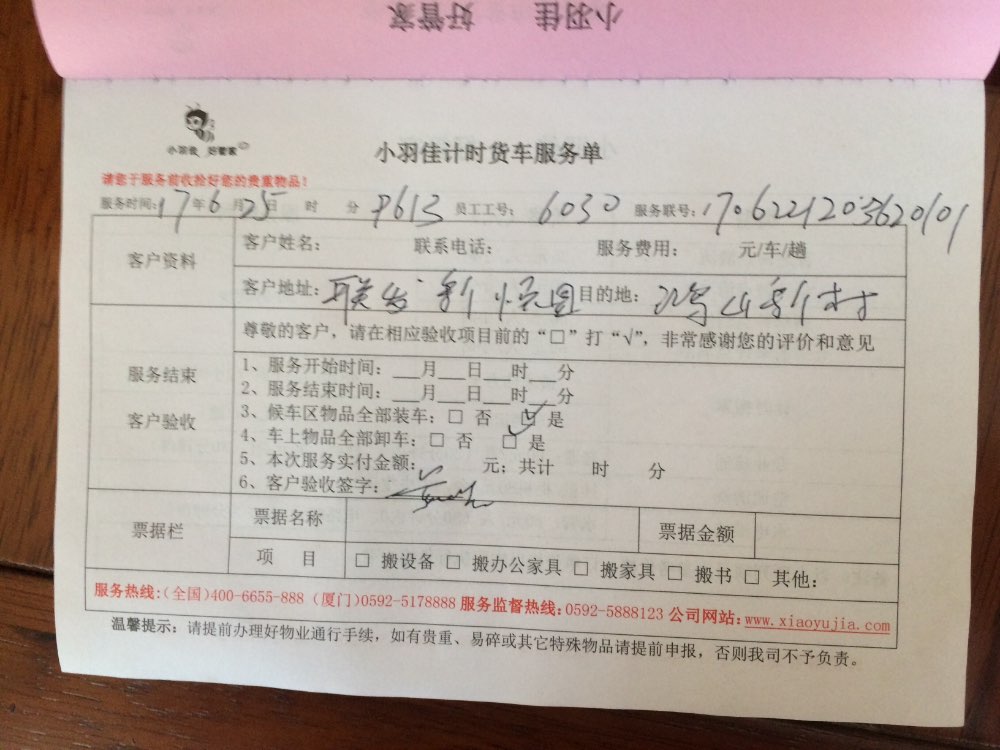 小羽佳 好管家
小羽佳 好管家
小羽佳计时货车服务单
请您于服务前收拾好您的贵重物品！
服务时间：17年6月25日 时 分 P613 员工工号：6030 服务联号：1706221203620101
客户资料
客户姓名： 联系电话： 服务费用： 元/车/趟
客户地址：联发新悦园 目的地：鸿山新村
服务结束
客户验收
尊敬的客户，请在相应验收项目前的“□”打“√”，非常感谢您的评价和意见
1、服务开始时间：___月___日___时___分
2、服务结束时间：___月___日___时___分
3、候车区物品全部装车：□ 否 ☑ 是
4、车上物品全部卸车：□ 否 ☑ 是
5、本次服务实付金额： 元；共计 时 分
6、客户验收签字：
票据栏
票据名称 票据金额
项 目 □ 搬设备 □ 搬办公家具 □ 搬家具 □ 搬书 □ 其他：
服务热线：（全国）400-6655-888（厦门）0592-5178888 服务监督热线：0592-5888123 公司网站：www.xiaoyujia.com
温馨提示：请提前办理好物业通行手续，如有贵重、易碎或其它特殊物品请提前申报，否则我司不予负责。